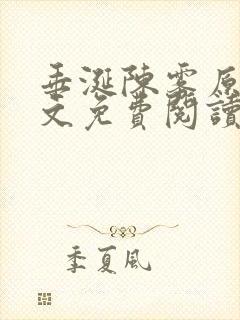 垂涎陳霧原
文免費閱讀
季夏風